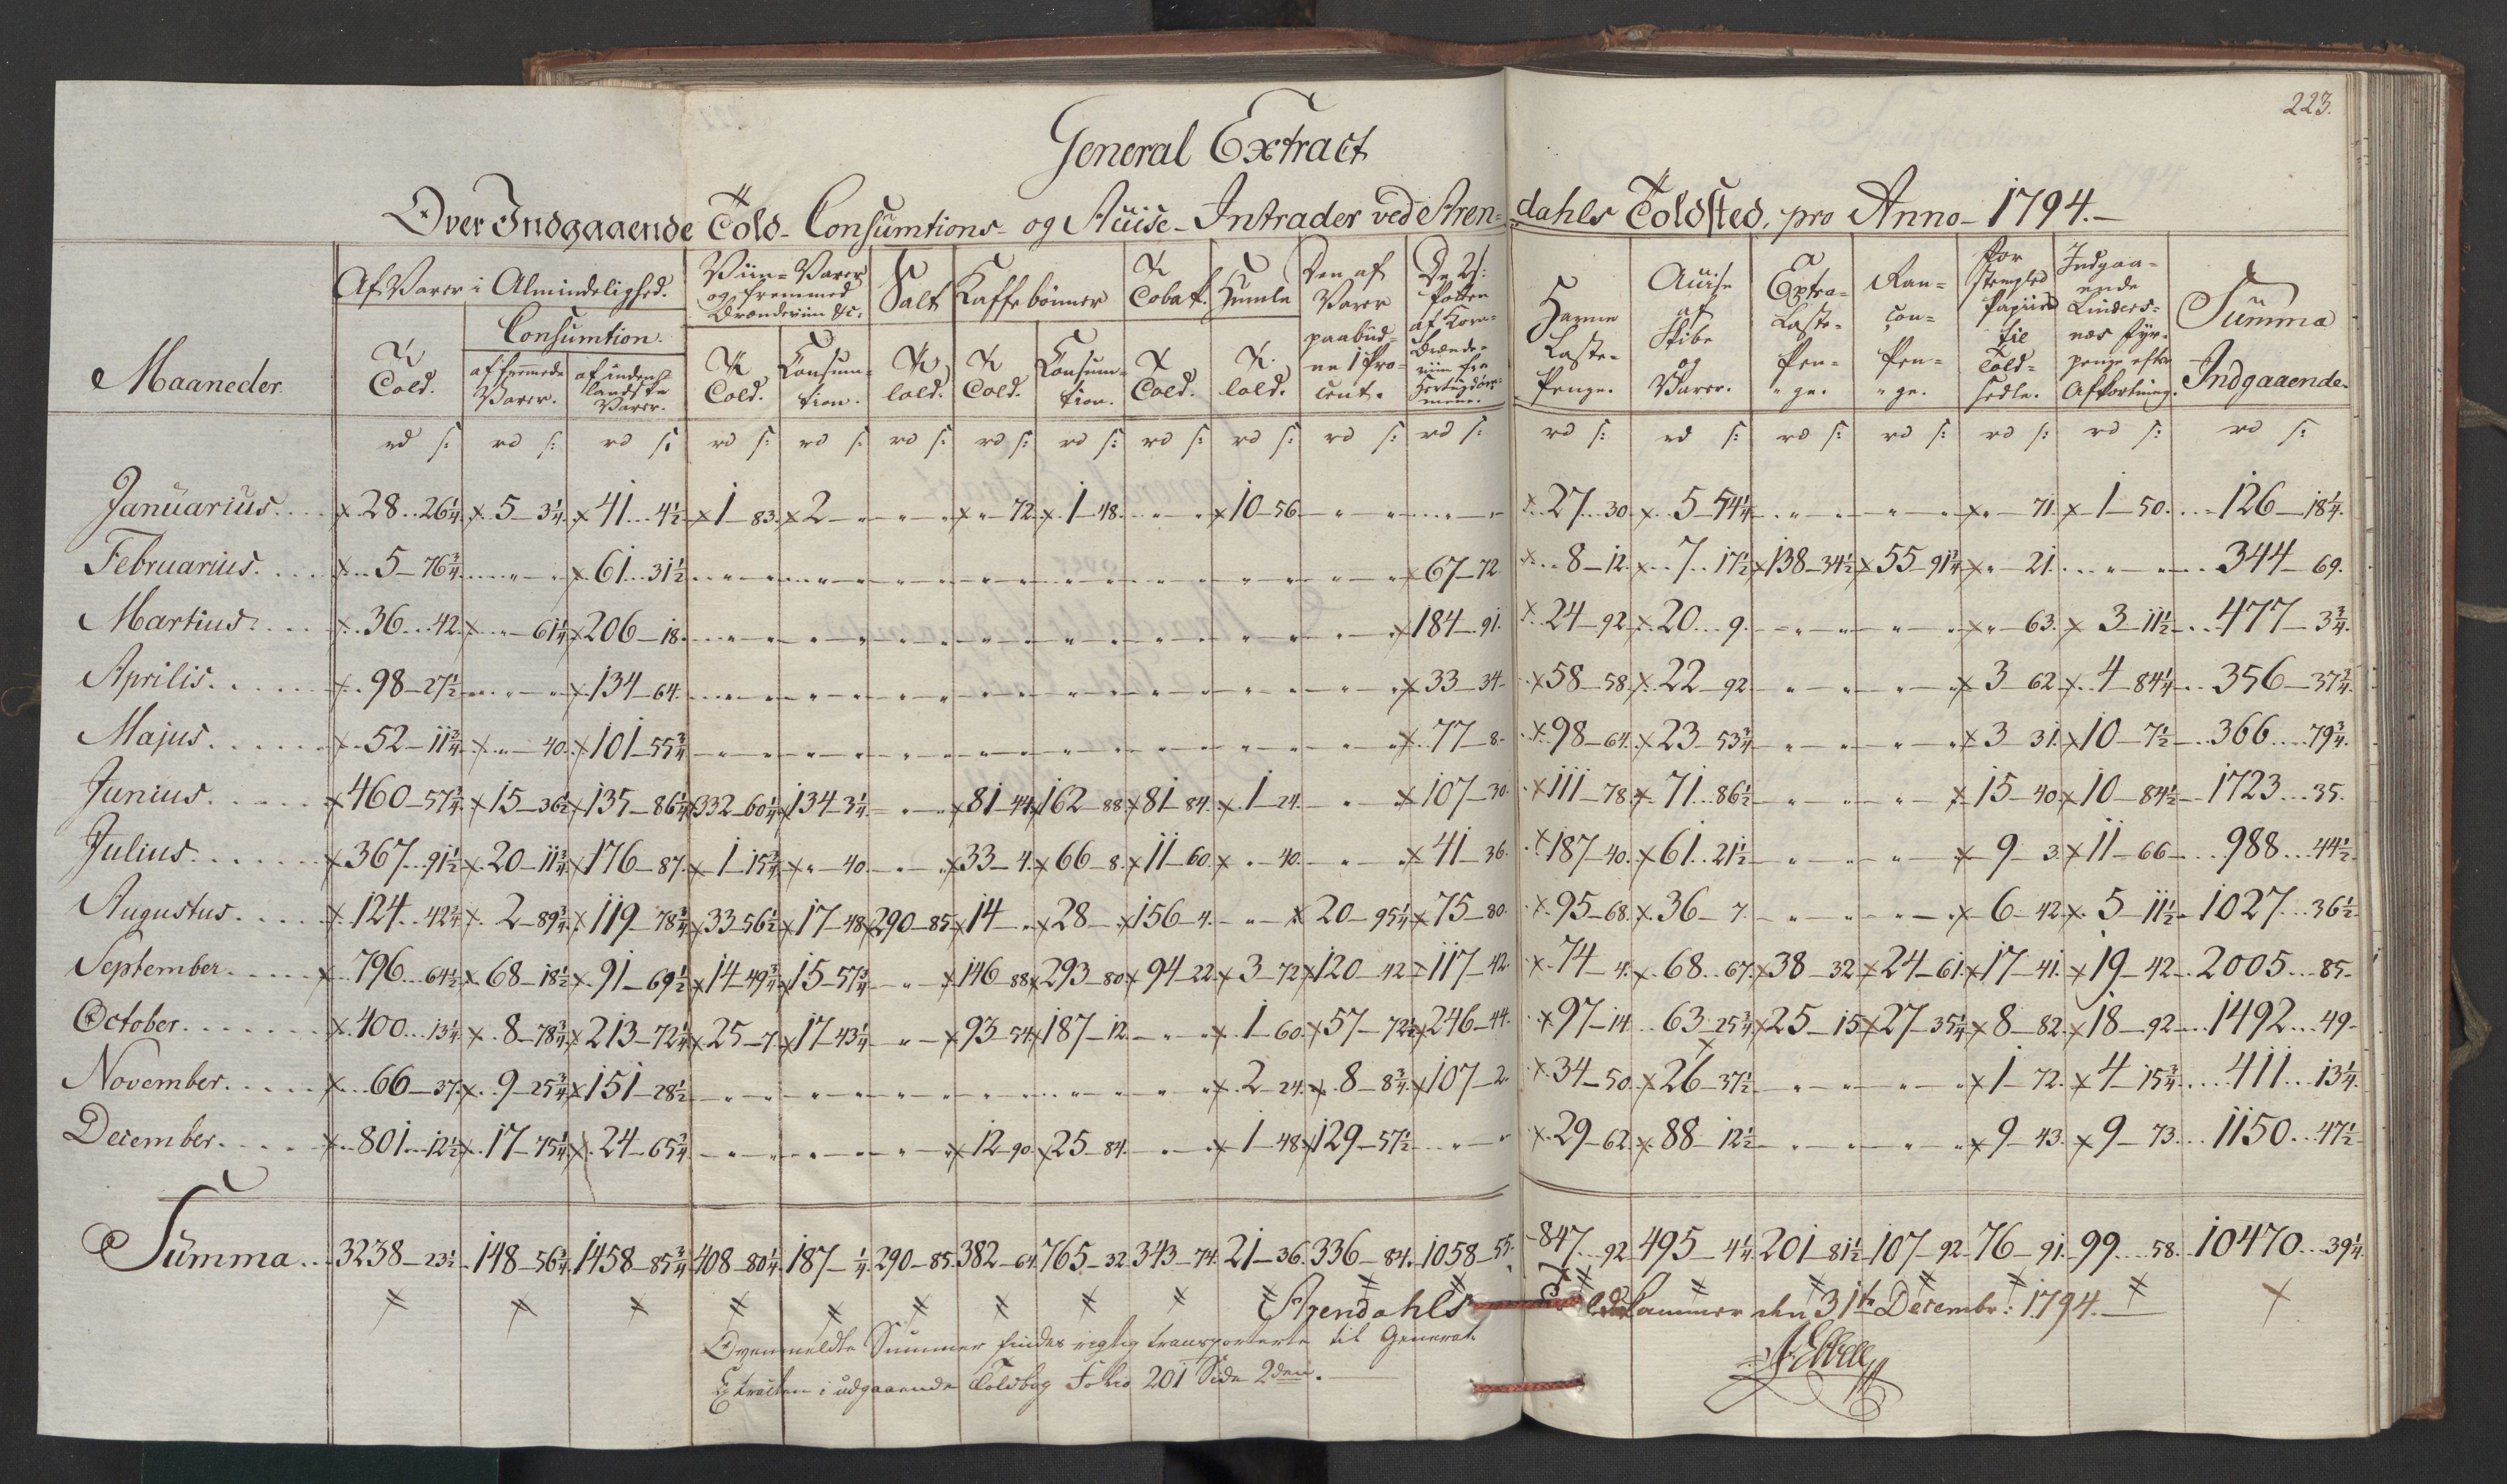 223.
General Extract
Over Indgaaende Told- Consumtions- og Acise-Intrader ved Aren= dahls Toldsted, pro Anno- 1794.-
Maaneder
Af Varer i Almindelighed.
Told.
Consumtion.
af fremmede Varer.
af inden= landske Varer.
Viin=Varer og fremmed Brændeviin &c:
Told.
Consum= tion.
Salt
Told.
Kaffebönner
Told.
Consum= tion.
Tobak.
Told.
Humle
Told.
Den af Varer paabud= ne 1 Pro= cent.
De 2 s: Potten af Korn= Brænde= viin fra Hertugdöm= mene.
Havne Laste- Penge.
Acise af Skibe og Varer.
Extra= Laste- Pen= ge.
Ran= çon= Pen= ge.
For stemplet Papiir til Told= sedle.
Indgaa= ende Linders= næs Fyr= penge efter Afkortning.
Summa Indgaaende.
rd s: rd s: rd s: rd s: rd s: rd s: rd s: rd s: rd s: rd s: rd s: rd s: rd s: rd s: rd s: rd s: rd s: rd s: rd s:
Januarius. 28 26¼ 5 3¼ 41 4½ 1 83. 2 " " " 72. 1 48. " 10 56. " " 27 30. 5 54¼ " " " 71. 1 50. 126 18¼.
Februarius. 5 76¾ " 61 31½ " " " " " " " " 67 72. 8 12. 7 17½ 138 34½ 55 91¾ " 21. " 344 69.
Martius. 36 42. " 61¼ 206 18. " " " " " " " " 184 91. 24 92. 20 9. " " " 63. 3 11½ 477 3¾.
Aprilis. 98 27½ " 134 64. " " " " " " " " 33 34. 58 58. 22 92 " " 3 62. 4 84¼ 356 37¾.
Majus. 52 11¾ " 40. 101 55¾ " " " " " " " " 77 8. 98 64. 23 53¾ " " 3 31. 10 7½ 366 79¾.
Junius. 460 57¾ 15 36½ 135 86¼ 332 60¼ 134 3¼ " 81 44. 162 88 81 84. 1 24. " 107 30. 111 78. 71 86½ " " 15 40. 10 84½ 1723 35.
Julius. 367 91½ 20 11¾ 176 87. 1 15¾ " 40. " 33 4. 66 8. 11 60. " 40. " 41 36. 187 40. 61 21½ " " 9 3. 11 66 988 44½.
Augustus. 124 42¾ 2 89¾ 119 78¾ 33 56½ 17 48 290 85. 14 " 28 " 156 4. " 20 95¼ 75 80. 95 68. 36 7. " " 6 42. 5 11½ 1027 36½
September. 796 64½ 68 18½ 91 69½ 14 49¾ 15 57¾ " 146 88 293 80 94 22. 3 72 120 42 117 42. 74 4. 68 67. 38 32 24 61. 17 41. 19 42 2005 85.
October. 400 13¼ 8 78¾ 213 72¼ 25 7. 17 43¼ " 93 54. 187 12. " 1 60. 57 72½ 246 44. 97 14. 63 25¾ 25 15 27 35¼ 8 82. 18 92 1492 49.
November. 66 37. 9 25¾ 151 28½ " " " " " " 2 24. 8 8¾ 107 2. 34 50. 26 37½ " " 1 72. 4 15¾ 411 13¼.
December. 801 12½ 17 75¼ 24 65¾ " " " 12 90. 25 84. " 1 48. 129 57½ " 29 62. 88 12½ " " 9 43. 9 73. 1150 47½
Summa. 3238 23½ 148 56¾ 1458 85¾ 408 80¼ 187 ¼ 290 85. 382 64. 765 32. 343 74. 21 36. 336 84. 1058 55. 847 92 495 4¼ 201 81½ 107 92 76 91. 99 58. 10470 39¼
Arendahls Toldkammer den 31te Decembr: 1794.
Ovenmeldte Summer findes rigtig transporterte til General
Extracten i udgaaende Toldbog Folio 201 Side 2den.